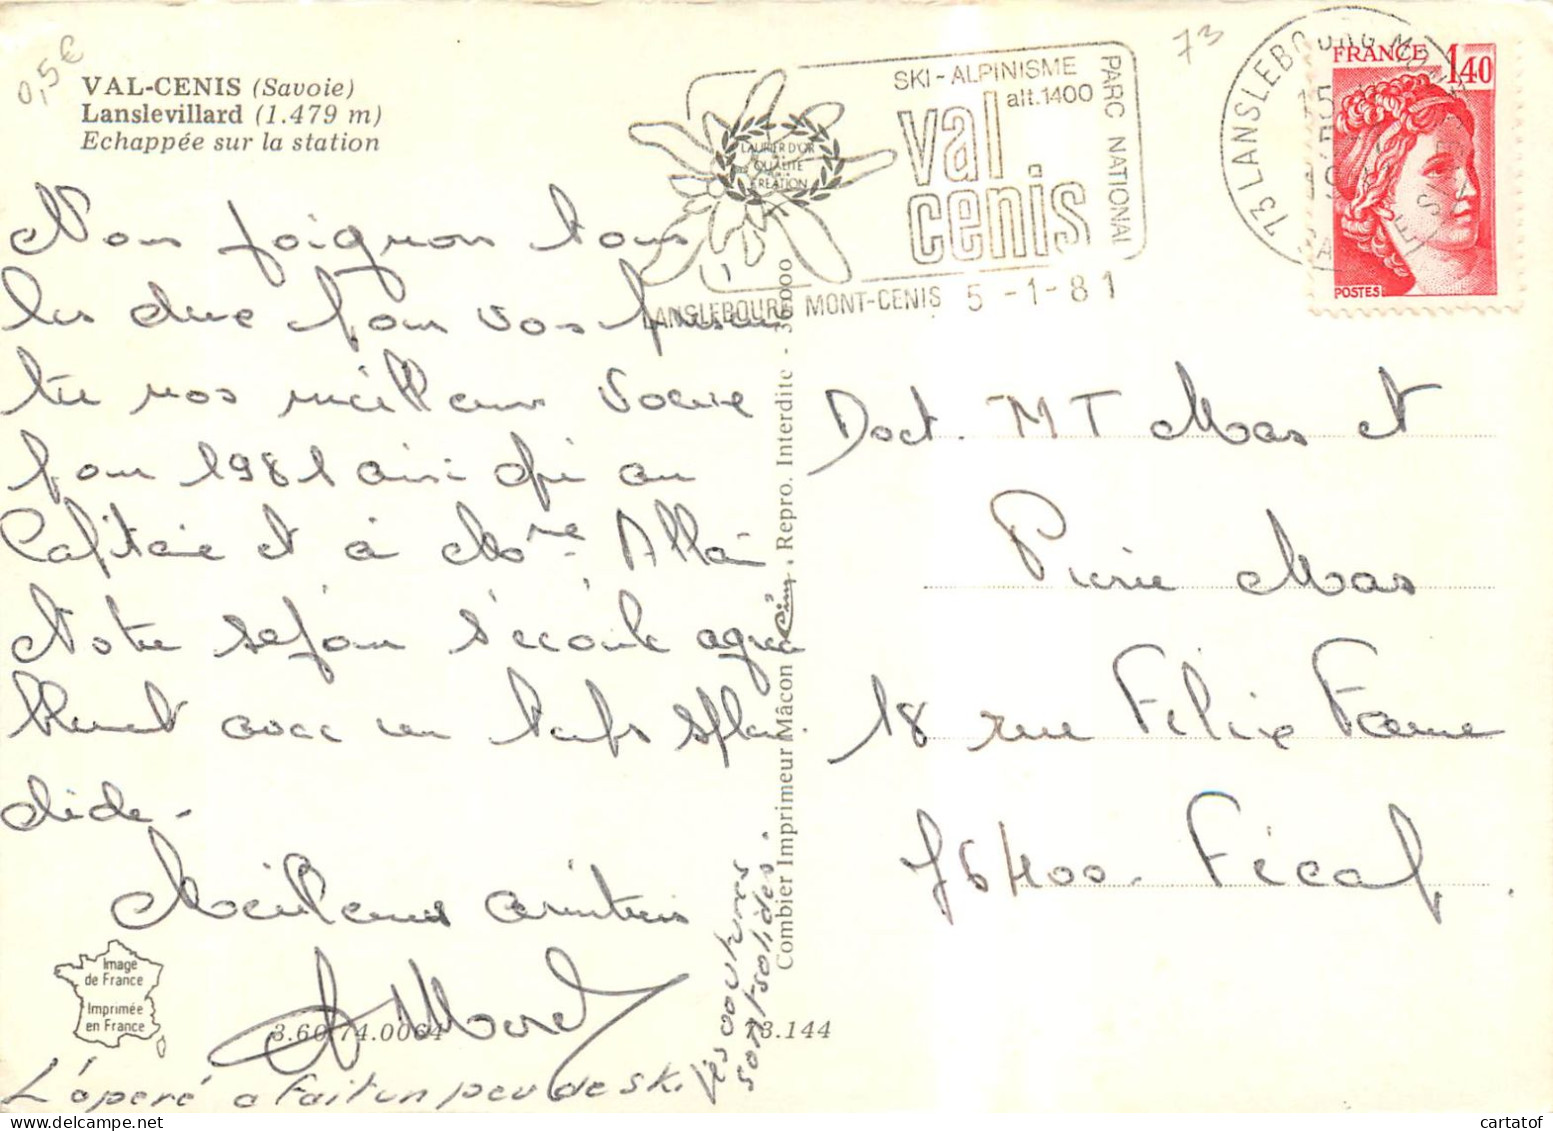 0,5€
VAL-CENIS (Savoie)
Lanslevillard (1.479 m)
Echappée sur la station
Nous joignons tous
les deux pour vos
nos meilleurs voeux
pour 1981 ainsi qu'au
Capitaine et à Mme
Notre séjour s'écoule agréa
blement avec un temps splen
dide -
Meilleures amitiés
L'opéré a fait un peu de ski
les coutures
sont solides.
Image
de France
Imprimée
en France
3.60.74.0064
73.144
Combier Imprimeur Mâcon Cim. Repro. Interdite - 30.000
LAURIER D'OR
QUALITÉ
CRÉATION
SKI-ALPINISME
alt.1400
val
cenis
PARC NATIONAL
LANSLEBOURG MONT-CENIS 5-1-81
73
73 LANSLEBOURG MONT
FRANCE 1,40
POSTES
Doct. MT Mas et
Pierre Mas
18 rue Félix Faure
76400 - Fécamp
cartatof